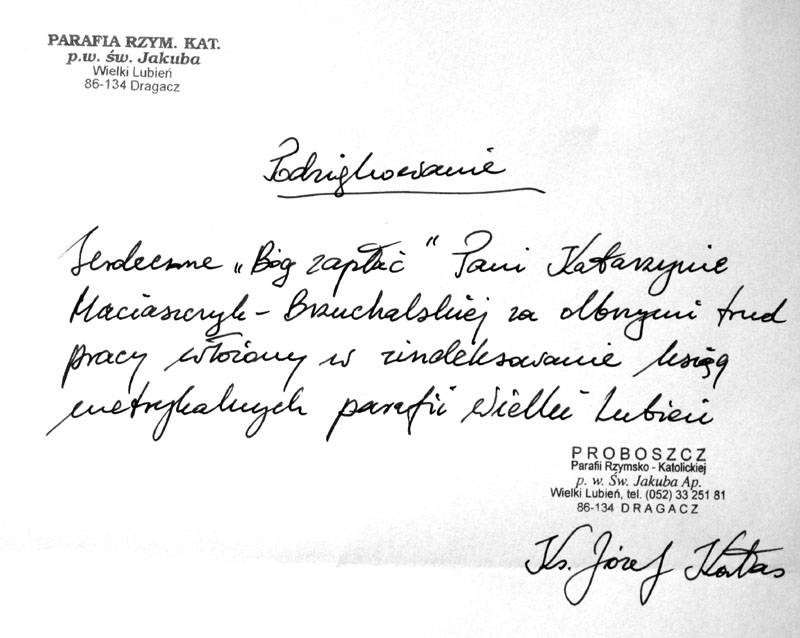 PARAFIA RZYM. KAT.
p.w. św. Jakuba
Wielki Lubień
86-134 Dragacz
Podziękowanie
Serdeczne „Bóg zapłać" Pani Katarzynie
Maciaszczyk-Brzuchalskiej za olbrzymi trud
pracy włożony w zindeksowanie ksiąg
metrykalnych parafii Wielki Lubień
PROBOSZCZ
Parafii Rzymsko - Katolickiej
p. w. Św. Jakuba Ap.
Wielki Lubień, tel. (052) 33 251 81
86-134 DRAGACZ
Ks. Józef Kałas